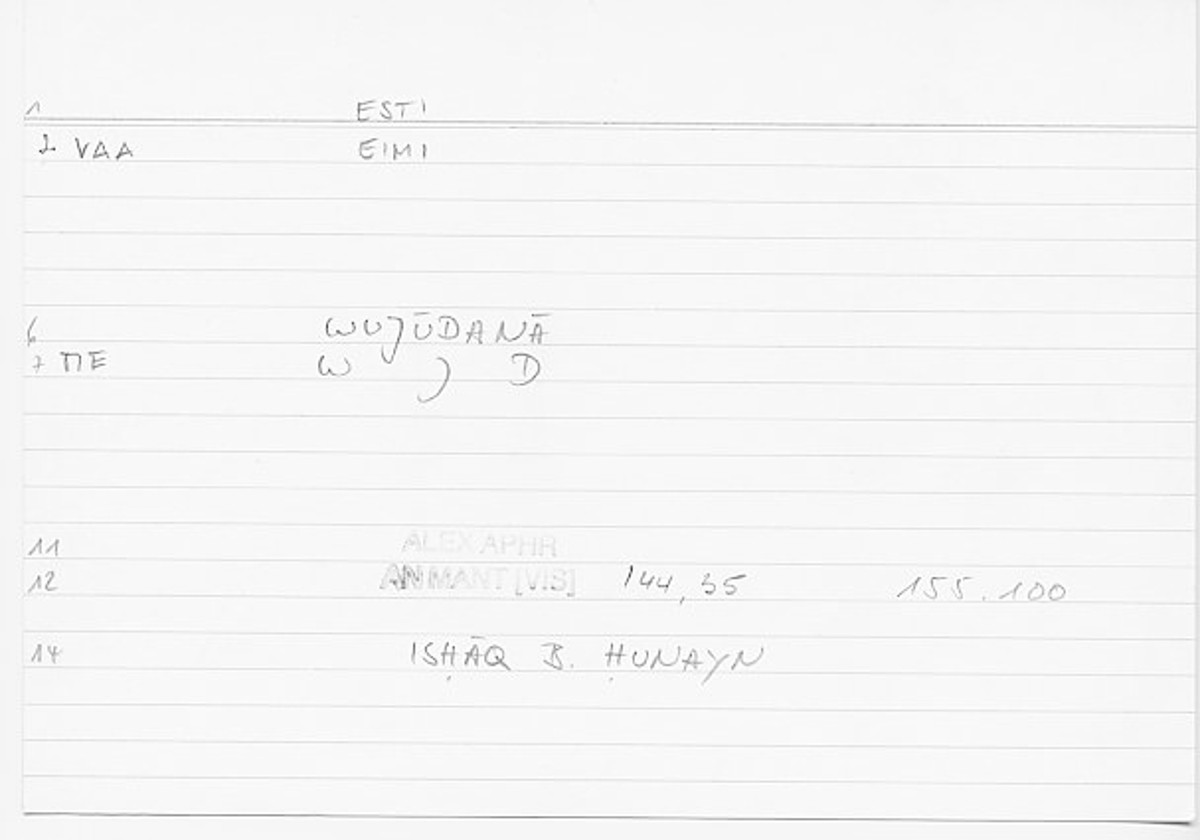 1 ESTI
2 VAA EIMI
6 WUJŪDANĀ
7 ME W J D
11 ALEX APHR
12 AN MANT [VIS] 144,35 155.100
14 ISḤĀQ B. ḤUNAYN